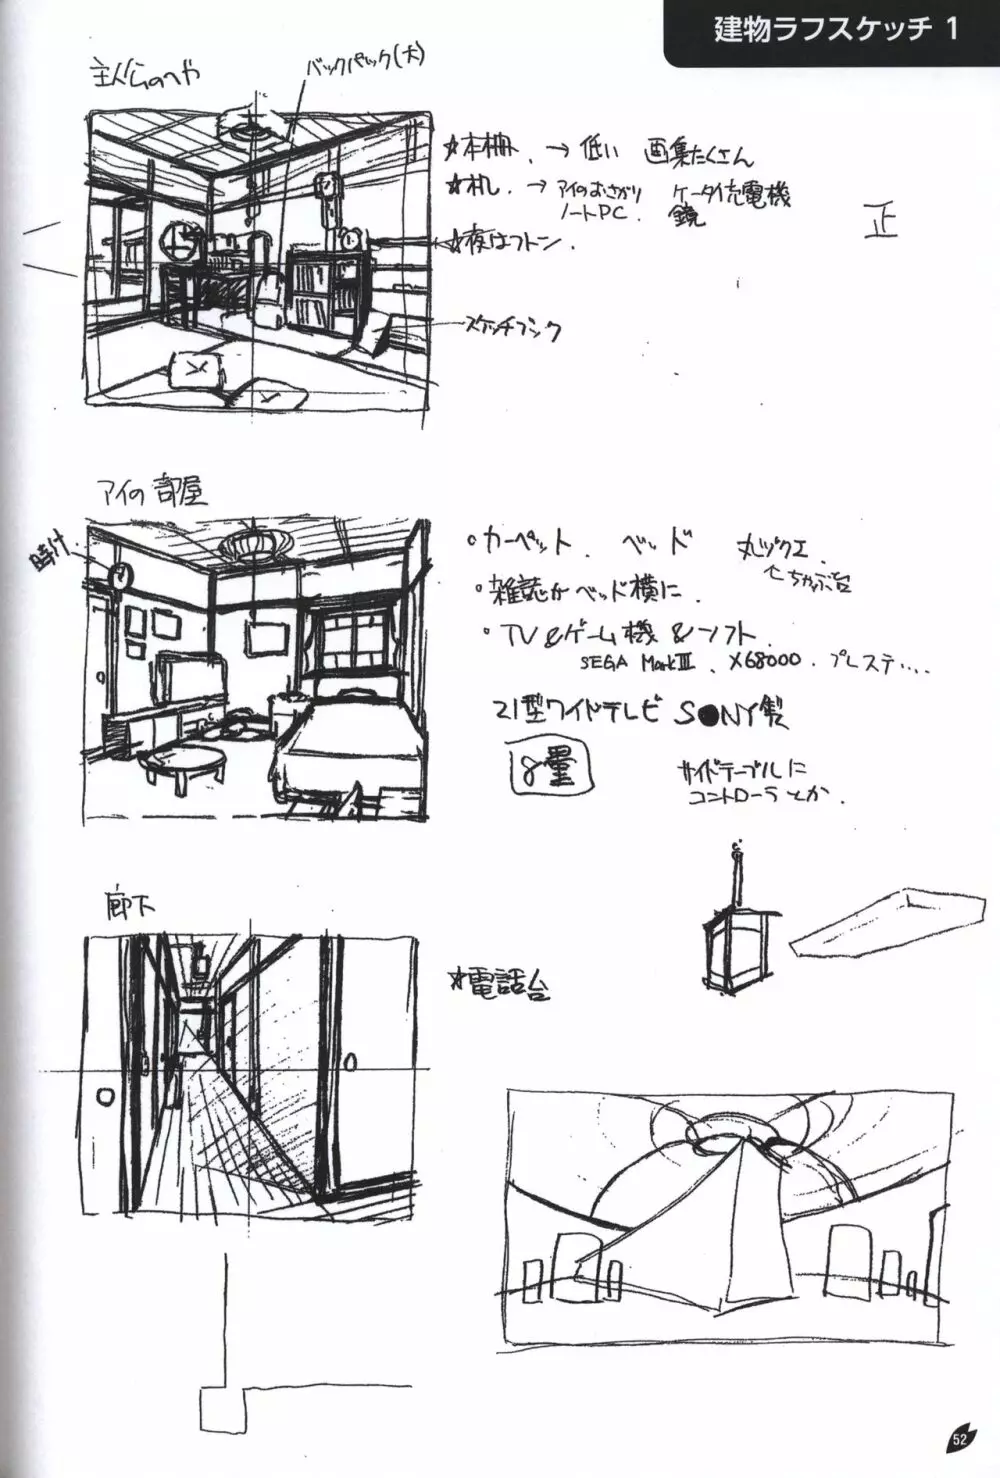 建物ラフスケッチ 1
主人公のへや
バックパック(大)
☆本棚. → 低い 画集たくさん
☆机. → アイのおさがり ケータイ充電機
ノートPC. 鏡
☆夜はフトン.
正
スケッチブック
アイの部屋
時計.
・カーペット. ベッド 丸ヅクエ.
←ちゃぶ台
・雑誌がベッド横に.
・TV&ゲーム機&ソフト.
SEGA MarkⅢ、X68000. プレステ....
21型ワイドテレビ S●NY製
8畳
サイドテーブルに
コントローラとか.
廊下
☆電話台
52